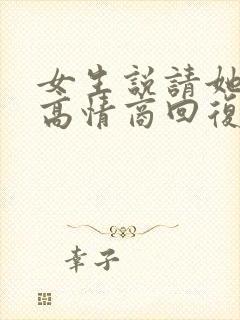 女生説請她
高情商回復
幸子